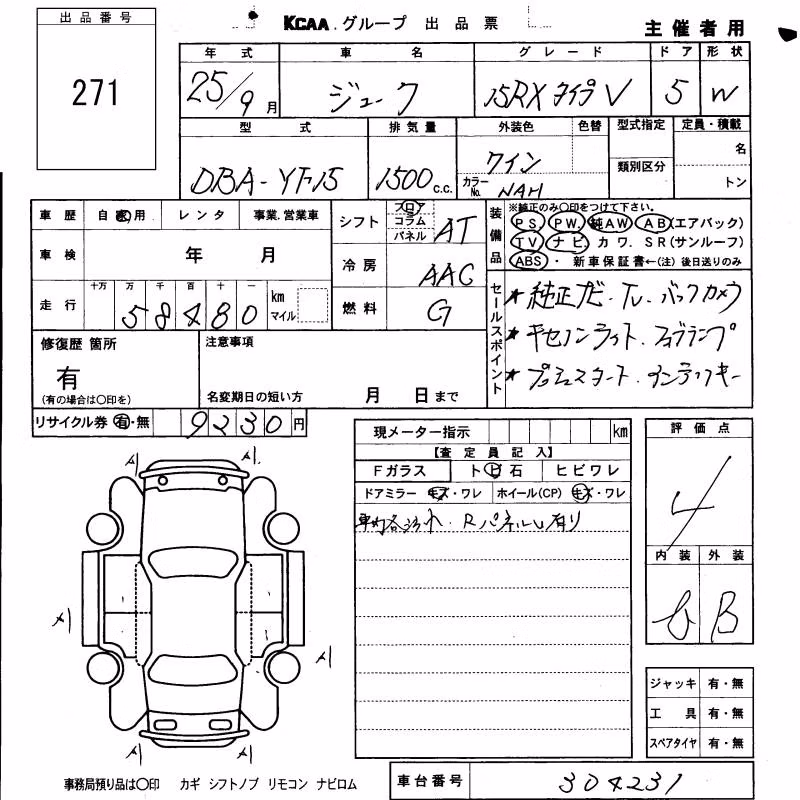 出品番号
271
KCAA.グループ 出品票
主催者用
年式 車名 グレード ドア 形状
25/9月 ジューク 15RX タイプV 5 W
型式 排気量 外装色 色替 型式指定 定員・積載
DBA-YF15 1500 c.c. ワイン カラーNo. NAH 類別区分 名 トン
車歴 自家用 レンタ 事業.営業車
車検 年 月
走行 十万 万 千 百 十 一 km マイル
58480
シフト フロア コラム パネル AT
冷房 AAC
燃料 G
装備品
※純正のみ〇印をつけて下さい。
PS. PW. 純AW AB(エアバック)
TV ナビ カワ. SR(サンルーフ)
ABS・新車保証書←(注)後日送りのみ
セールスポイント
★純正ナビ・TV.バックカメラ
★キセノンライト.フォグランプ
★プッシュスタート.インテリキー
修復歴 箇所
有
(有の場合は〇印を)
注意事項
名変期日の短い方 月 日まで
リサイクル券 有・無 9230円
現メーター指示 km
【査定員記入】
Fガラス ト ビ 石 ヒビワレ
ドアミラー キズ・ワレ ホイール(CP) キズ・ワレ
Rパネルし有り
評価点
4
内装 外装
B
ジャッキ 有・無
工具 有・無
スペアタイヤ 有・無
事務局預り品は〇印 カギ シフトノブ リモコン ナビロム
車台番号 304231